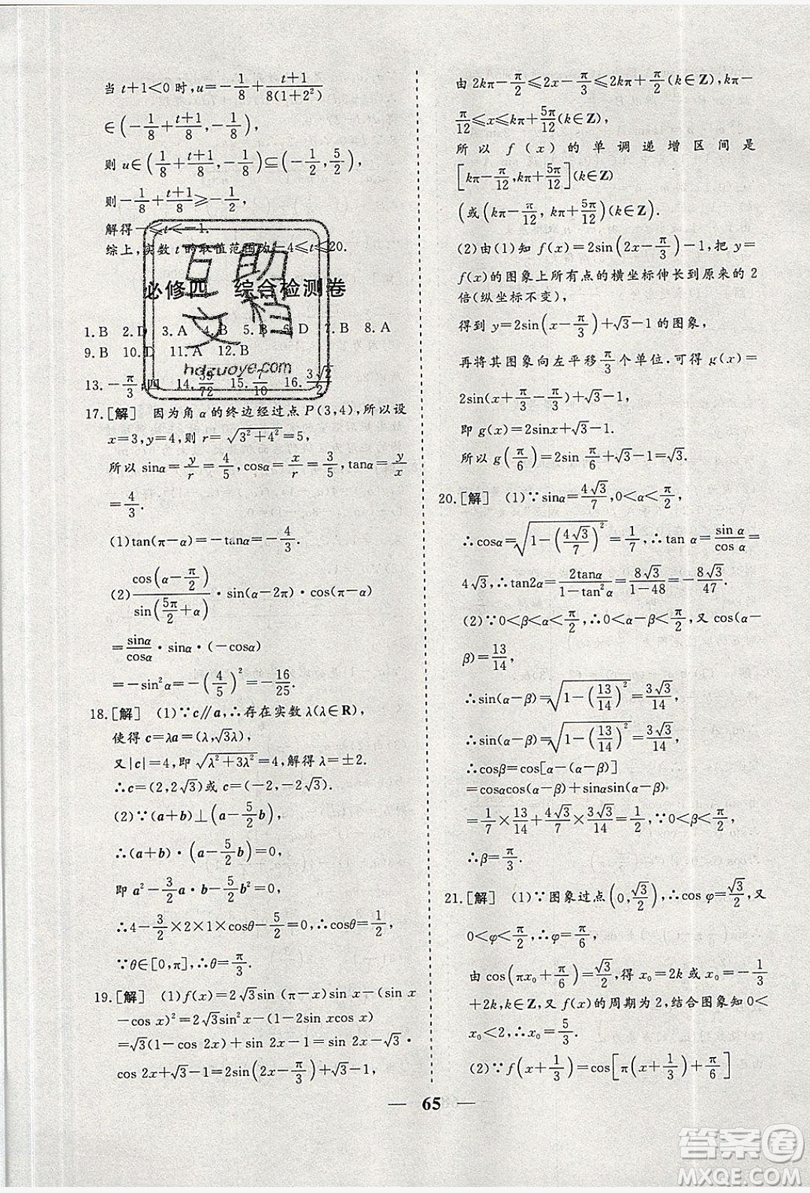 当 t+1<0 时, u=-1/8+(t+1)/(8(1+2²))
∈(-1/8+(t+1)/8,-1/8),
则 u∈(-1/8+(t+1)/8,-1/8)⊆(-1/2,5/2),
则-1/8+(t+1)/8≥-1/2,
解得-4≤t<-1.
综上,实数 t 的取值范围为-4≤t≤20.
必修四 综合检测卷
1. B 2. D 3. A 4. B 7. B 8. A
9. B 10. D 11. A 12. B
13. -π/3 四 14. 35/72 15. 7/10 16. 3√2/2
17. [解] 因为角 α 的终边经过点 P(3,4),所以设
x=3,y=4,则 r=√(3²+4²)=5,
所以 sinα=y/r=4/5,cosα=x/r=3/5,tanα=y/x
=4/3.
(1)tan(π-α)=-tanα=-4/3.
(2) cos(α-π/2)/sin(5π/2+α)·sin(α-2π)·cos(π-α)
=sinα/cosα·sinα·(-cosα)
=-sin²α=-(4/5)²=-16/25.
18. [解] (1)∵c∥a,∴存在实数 λ(λ∈R),
使得 c=λa=(λ,√3λ),
又|c|=4,即√(λ²+3λ²)=4,解得 λ=±2.
∴c=(2,2√3)或 c=(-2,-2√3).
(2)∵(a+b)⊥(a-5/2b),
∴(a+b)·(a-5/2b)=0,
即 a²-3/2a·b-5/2b²=0,
∴4-3/2×2×1×cosθ-5/2=0,∴cosθ=1/2,
∵θ∈[0,π],∴θ=π/3.
19. [解] (1)f(x)=2√3sin (π-x)sin x-(sin x
-cos x)²=2√3sin²x-(1-2sin xcos x)
=√3(1-cos 2x)+sin 2x-1=sin 2x-√3·
cos 2x+√3-1=2sin(2x-π/3)+√3-1,
由 2kπ-π/2≤2x-π/3≤2kπ+π/2(k∈Z),得 kπ-
π/12≤x≤kπ+5π/12(k∈Z),
所以 f(x) 的单调递增区间是
[kπ-π/12,kπ+5π/12](k∈Z)
(或(kπ-π/12,kπ+5π/12)(k∈Z)).
(2)由(1)知 f(x)=2sin(2x-π/3)+√3-1,把 y=
f(x)的图象上所有点的横坐标伸长到原来的 2 倍
(纵坐标不变),
得到 y=2sin(x-π/3)+√3-1的图象,
再将其图象向左平移π/3个单位,可得
2sin(x+π/3-π/3)+√3-1
即 g(x)=2sinx+√3-1.
所以 g(π/6)=2sinπ/6+√3-1=√3.
20. [解] (1)∵sinα=4√3/7,0<α<π/2,
∴cosα=√(1-(4√3/7)²)=1/7,∴tan α=sin α/cos α=
4√3,∴tan2α=2tanα/(1-tan²α)=8√3/(1-48)=-8√3/47.
(2)∵0<β<α<π/2,∴0<α-β<π/2,又 cos(α-
β)=13/14,
∴sin(α-β)=√(1-(13/14)²)=3√3/14,
∴cosβ=cos[α-(α-β)]=
cosαcos(α-β)+sinαsin(α-β)
=1/7×13/14+4√3/7×3√3/14=1/2,∵0<β<π/2,
∴β=π/3.
21. [解] (1)∵图象过点(0,√3/2),∴cos φ=√3/2,又
0<φ<π/2,∴φ=π/6,
由 cos(πx₀+π/6)=√3/2,得 x₀=2k 或 x₀=-1/3
+2k,k∈Z,又 f(x)的周期为 2,结合图象知 0<
x₀<2,∴x₀=5/3.
(2)∵f(x+1/3)=cos[π(x+1/3)+π/6]
65
互助文档
hdzuoye.com
答案圈
MXQE.COM